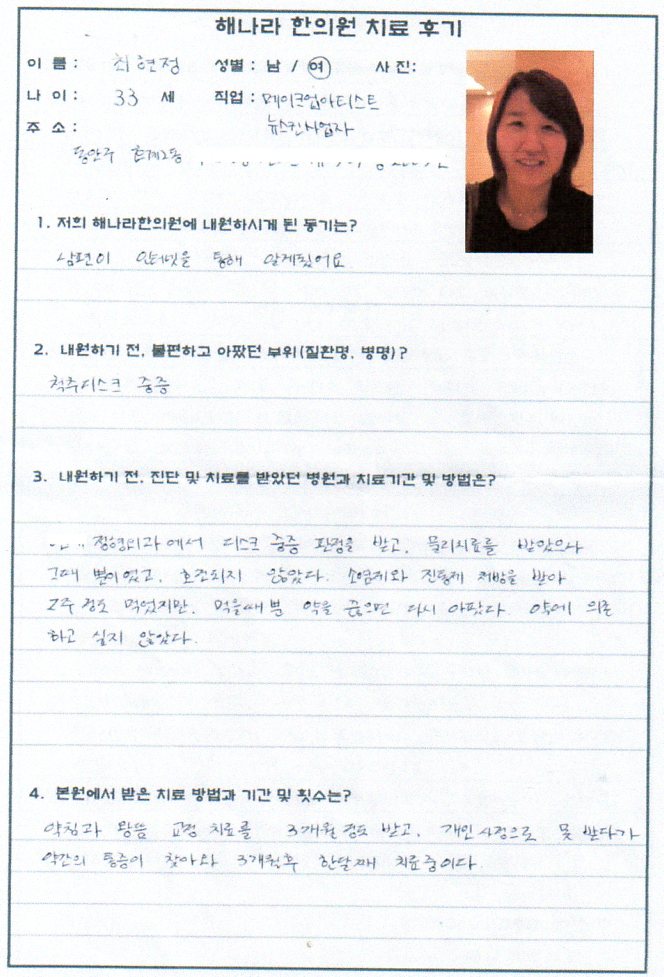 해나라 한의원 치료 후기
이 름 : 최현정 성별 : 남 / 여 사 진:
나 이 : 33 세 직업 : 메이크업아티스트
뉴스킨사업자
주 소 :
동안구 호계2동
1. 저희 해나라한의원에 내원하시게 된 동기는?
남편이 인터넷을 통해 알게됬어요
2. 내원하기 전, 불편하고 아팠던 부위(질환명, 병명)?
척추디스크 중증
3. 내원하기 전, 진단 및 치료를 받았던 병원과 치료기간 및 방법은?
정형외과에서 디스크 중증 판정을 받고, 물리치료를 받았으나
그때 뿐이었고, 호전되지 않았다. 소염제와 진통제 처방을 받아
2주 정도 먹었지만, 먹을때 뿐 약을 끊으면 다시 아팠다 약에 의존
하고 싶지 않았다.
4. 본원에서 받은 치료 방법과 기간 및 횟수는?
약침과 왕뜸 교정 치료를 3개월 정도 받고, 개인사정으로 못 받다가
약간의 통증이 찾아와 3개월후 한달째 치료중이다.